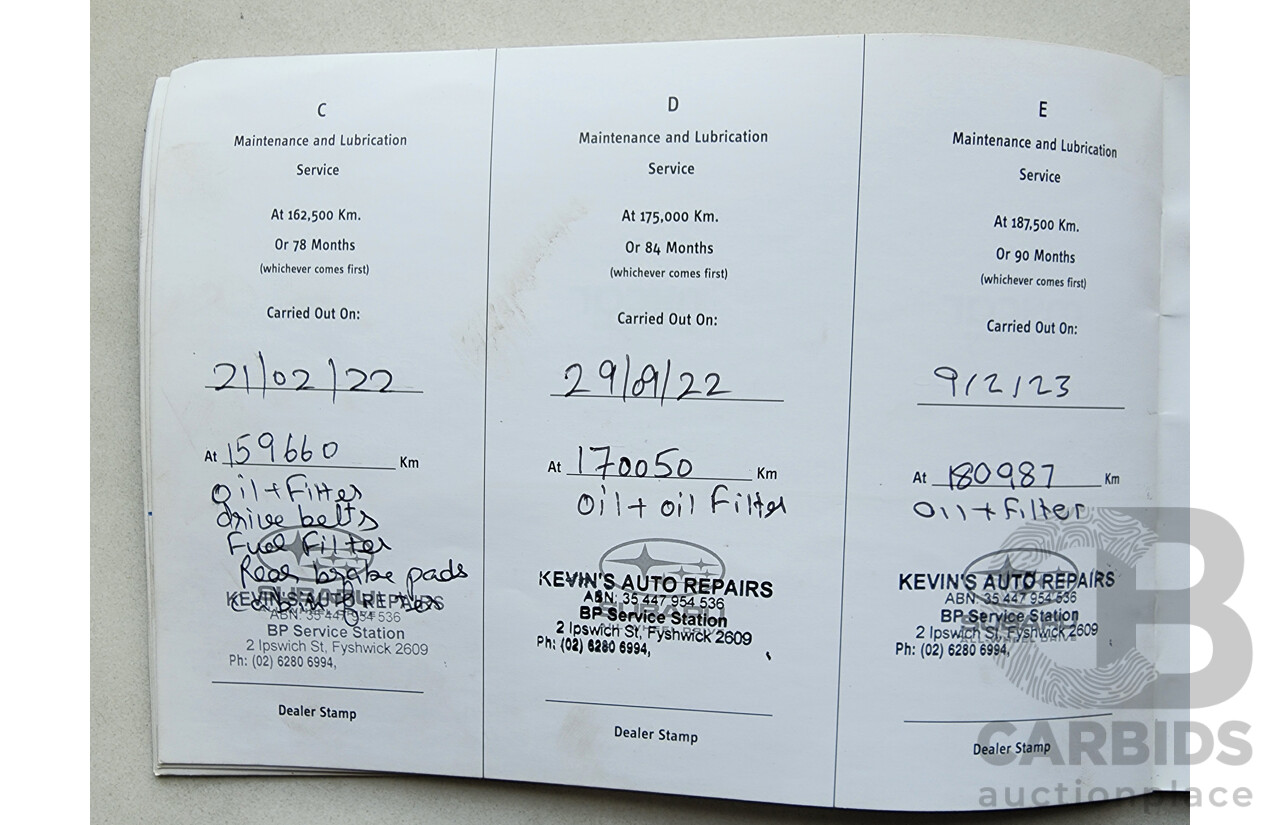 C
Maintenance and Lubrication
Service
At 162,500 Km.
Or 78 Months
(whichever comes first)
Carried Out On:
21/02/22
At 159660 Km
Oil + Filter
drive belts
Fuel Filter
Rear brake pads
KEVIN'S AUTO REPAIRS
ABN: 35 447 954 536
BP Service Station
2 Ipswich St, Fyshwick 2609
Ph: (02) 6280 6994,
Dealer Stamp
D
Maintenance and Lubrication
Service
At 175,000 Km.
Or 84 Months
(whichever comes first)
Carried Out On:
At 170050 Km
Oil + oil Filter
KEVIN'S AUTO REPAIRS
ABN: 35 447 954 536
SUBARU
BP Service Station
2 Ipswich St, Fyshwick 2609
Ph: (02) 6280 6994,
Dealer Stamp
E
Maintenance and Lubrication
Service
At 187,500 Km.
Or 90 Months
(whichever comes first)
Carried Out On:
9/2/23
At 180987 Km
Oil + Filter
KEVIN'S AUTO REPAIRS
ABN: 35 447 954 536
BP Service Station
2 Ipswich St, Fyshwick 2609
Ph: (02) 6280 6994,
Dealer Stamp
CARBIDS
auctionplace